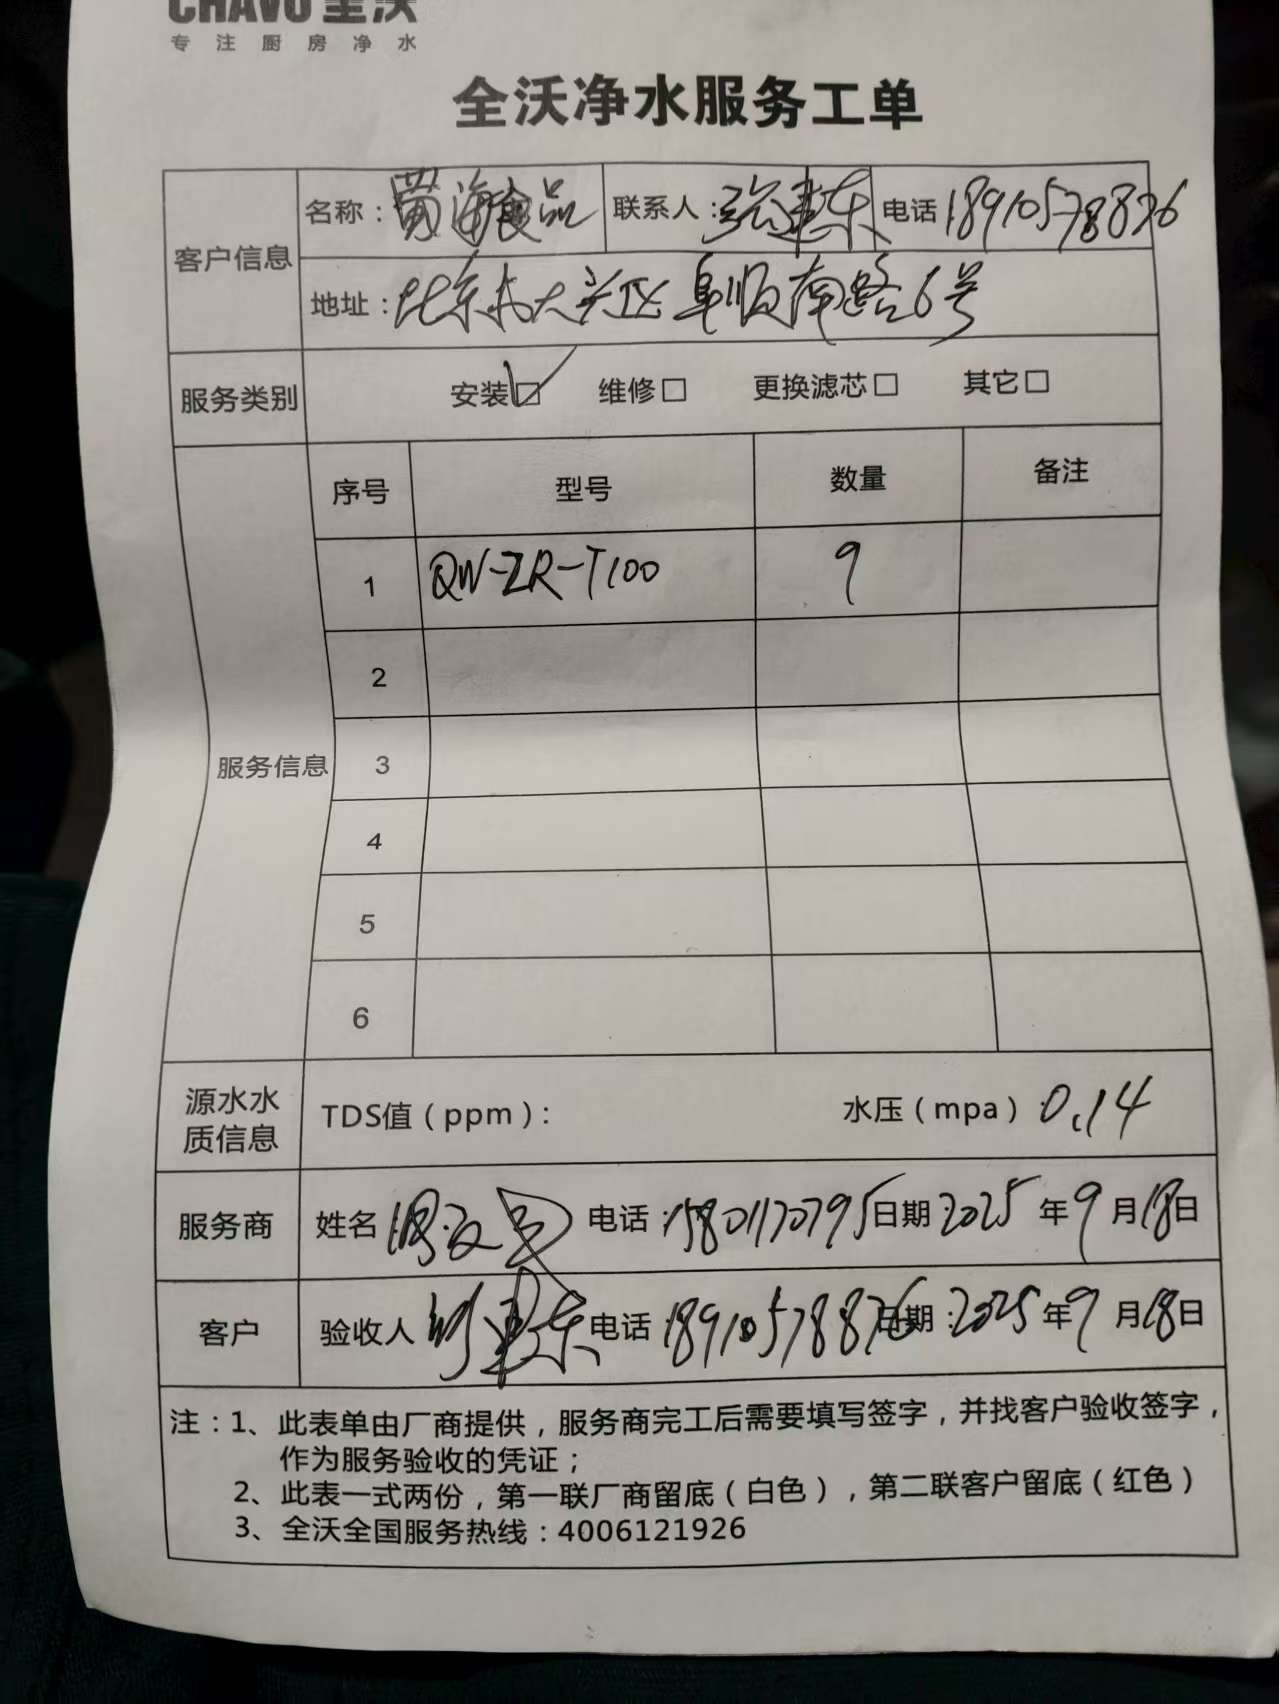 CHAVO 全沃
专注厨房净水
全沃净水服务工单
客户信息
名称： 海食品 联系人：张建东 电话 18910578876
地址：北京市大兴区阜顺南路6号
服务类别 安装☑ 维修□ 更换滤芯□ 其它□
服务信息
序号 型号 数量 备注
1 QW-ZR-T100 9
2
3
4
5
6
源水水质信息
TDS值（ppm）： 水压（mpa） 0.14
服务商 姓名 电话：15801170795 日期：2025 年 9 月 18 日
客户 验收人 建东 电话：18910578876 日期：2025 年 9 月 18 日
注：1、此表单由厂商提供，服务商完工后需要填写签字，并找客户验收签字，
作为服务验收的凭证；
2、此表一式两份，第一联厂商留底（白色），第二联客户留底（红色）
3、全沃全国服务热线：4006121926